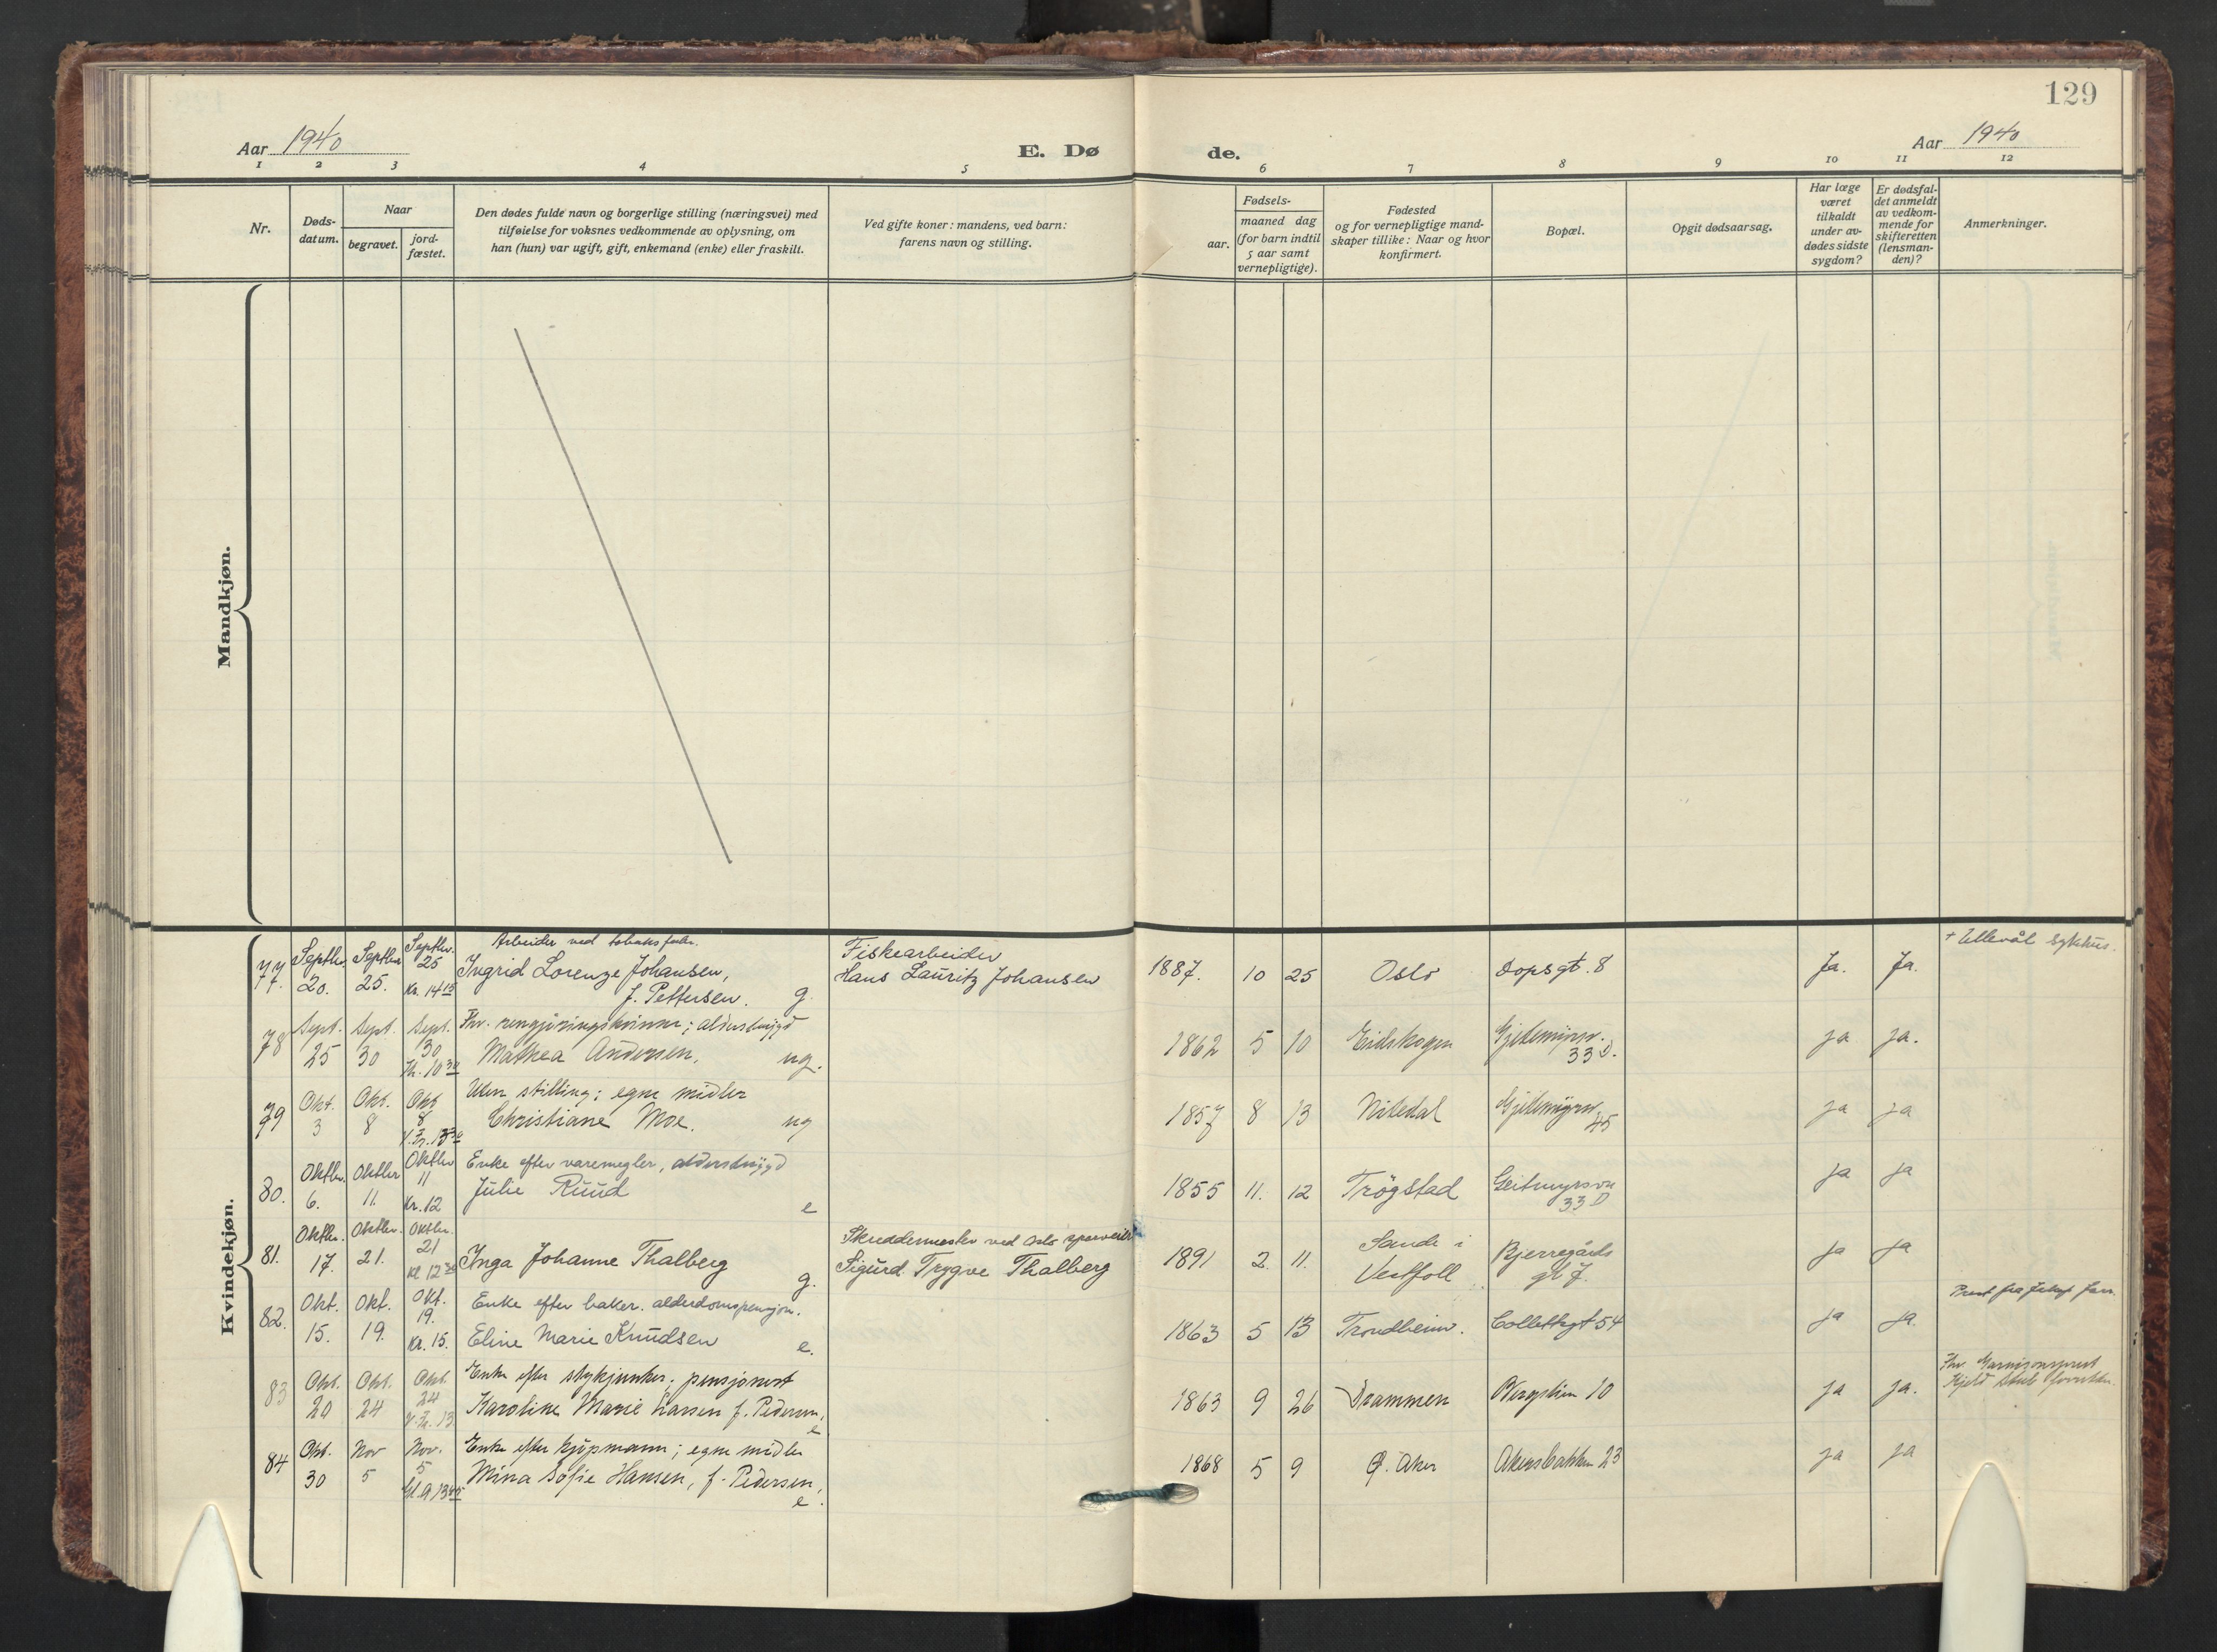 129
Aar 1940
E. Dø
de.
Aar 1940
1 2 3 4 5 6 7 8 9 10 11 12
Nr.
Døds-
datum.
Naar
begravet.
jord-
fæstet.
Den dødes fulde navn og borgerlige stilling (næringsvei) med
tilføielse for voksnes vedkommende av oplysning, om
han (hun) var ugift, gift, enkemand (enke) eller fraskilt.
Ved gifte koner: mandens, ved barn:
farens navn og stilling.
Fødsels-
aar.
maaned dag
(for barn indtil
5 aar samt
vernepligtige).
Fødested
og for vernepligtige mand-
skaper tillike: Naar og hvor
konfirmert.
Bopæl.
Opgit dødsaarsag.
Har læge
været
tilkaldt
under av-
dødes sidste
sygdom?
Er dødsfal-
det anmeldt
av vedkom-
mende for
skifteretten
(lensman-
den)?
Anmerkninger.
Mandkjøn.
Kvindekjøn.
77.
Septbr.
20.
Septbr
25.
Septbr.
25
Kr. 14 15
Arbeider ved tobaksfabr.
Ingrid Lorenze Johansen,
f. Pettersen. g.
Fiskearbeider
Hans Lauritz Johansen
1887. 10 25 Oslo Dopsgt. 8 Ja. Ja.
+ Ullevål sykehus.
78
Sept.
25
Sept.
30
Sept.
30
10 30
Fhv. rengjøringskvinne; alderstrygd
Mathea Andersen, ug.
1862 5 10 Eidskogen Gjetemyrsv.
33 D.
ja ja.
79
Okt.
3
Okt.
8
Okt
8
Uten stilling; egne midler
Christiane Moe. ug
1857 8 13 Nitedal Gjetemyrsv
45
ja ja
80.
Oktbr.
6.
Oktbr
11.
Oktbr
11
Kr. 12
Enke efter varemegler, alderstrygd
Julie Ruud
e
1855 11. 12 Trøgstad Geitmyrsvn
33 D
ja ja
81.
Oktbr.
17.
Oktbr.
21.
Oktbr.
21
Kl 12 30
Inga Johanne Thalberg
g.
Skreddermester ved Oslo sporveier
Sigurd Trygve Thalberg
1891 2. 11. Sande i
Vestfoll
Bjerregårds
gt 7.
ja ja
82.
Okt.
15.
Okt.
19.
Okt.
19.
Kr. 15.
Enke efter baker. alderdomspensjon.
Eline Marie Knudsen e.
1863 5 13 Trondheim. Collettsgt 54 ja ja.
Prest fra
83
Okt.
20
Okt.
24
Okt.
24
13
Enke efter stykjunker; pensjonist
Karoline Marie Larsen f. Pedersen,
e
1863 9 26 Drammen Bergslien 10 ja ja.
Fhv. Garnisonsprest
Kjeld Stub
84
Okt.
30
Nov
5
Nov.
5
13 45
Enke efter kjøpmann; egne midler
Mina Sofie Hansen, f. Pedersen,
e.
1868 5 9 Ø. Aker Akersbakken 23 ja ja